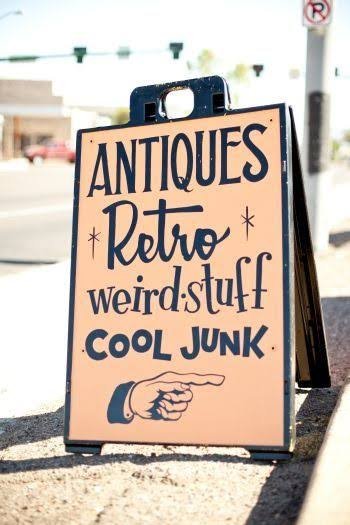 ANTIQUES
Retro
weird·stuff
COOL JUNK
P